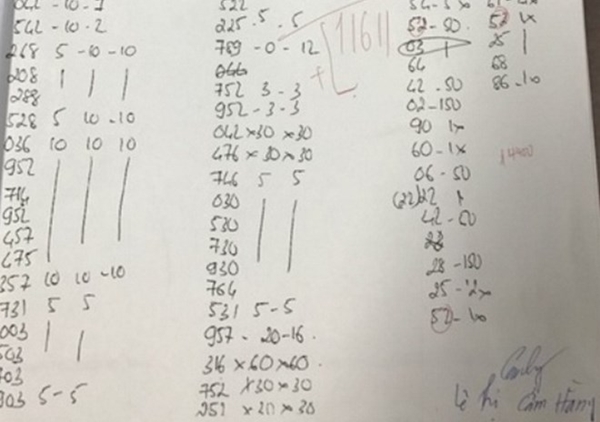 542 - 10 - 2
268 5 - 10 - 10
208
288
528 5 10 - 10
036 10 10 10
952
714
952
457
475
357 10 10 - 10
731 5 5
003
503
303
303 5 - 5
522
225 . 5 . 5
789 - 0 - 12
066
752 3 - 3
952 - 3 - 3
042 × 30 × 30
476 × 30 × 30
746 5 5
030
530
730
930
764
531 5 - 5
957 - 20 - 16 .
316 × 60 × 60
752 × 30 × 30
252 × 20 × 30
11611
52 - 50
03 1
64
42 - 50
02 - 150
90 1x
60 - 1x
06 - 50
(22) 22
42 - 50
28 - 150
25 - 2x
52 - 
52 1x
25
68
86 -
14400
Lê Thị Cẩm Hằng